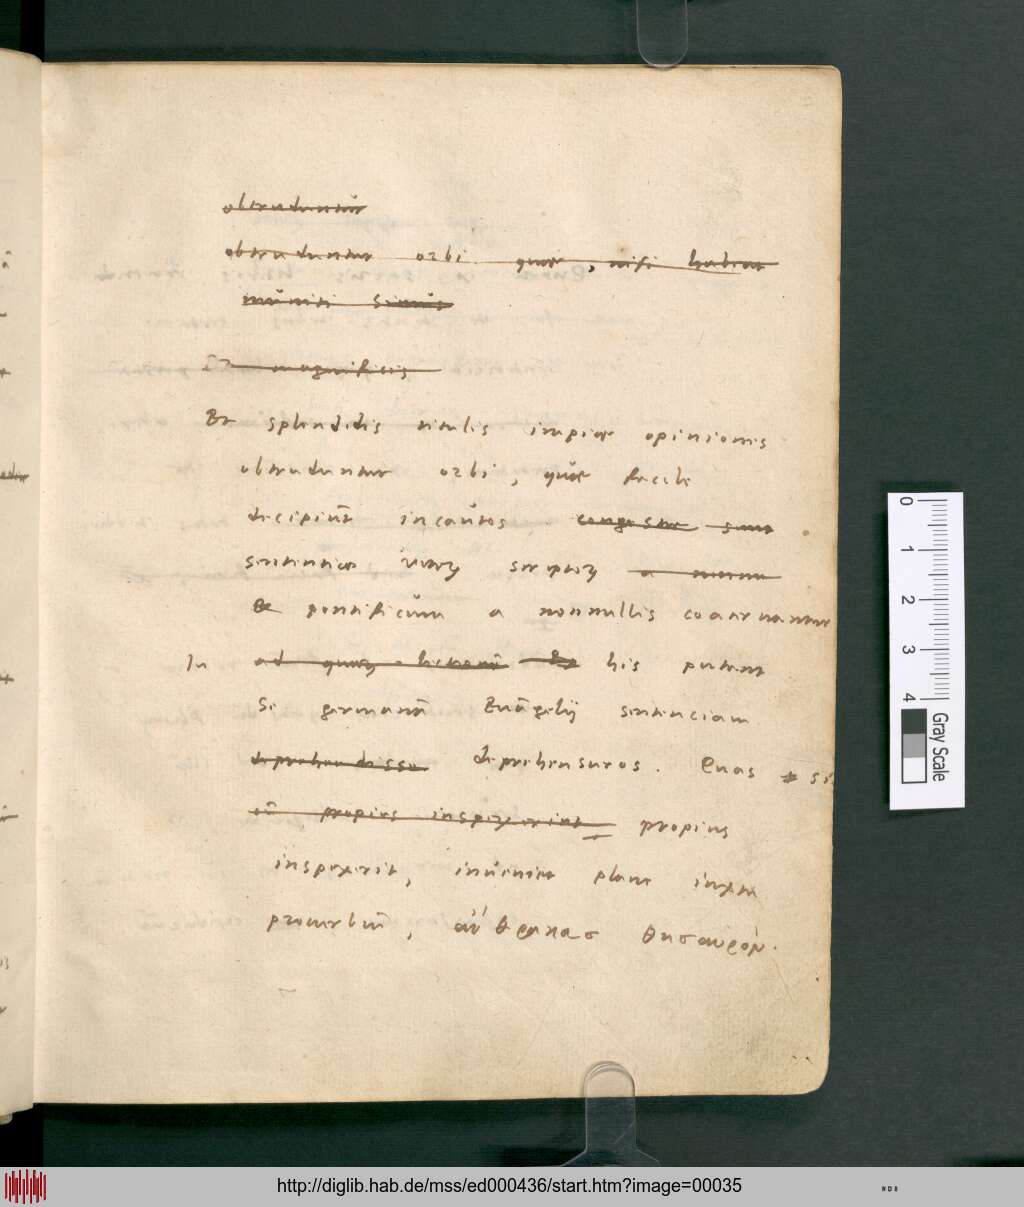 obtruduntur
obtruduntur orbi quæ, nisi habeat
muniti simus
Et magnificis
Et splendidis titulis impiæ opiniones
obtruduntur orbi, quæ facile
decipiūt incautos congestæ sunt
sententiæ
& pontificum a nonnullis coaaruantur
In ad his putant
Se germanā Euāgelij sententiam
deprehendisse deprehensuros. Quas si
propius inspexerint propius
inspexerit, inueniet plane iuxta
prouerbiū, ἀνθρακασ θησαυρόν.
0 1 2 3 4
Gray Scale
http://diglib.hab.de/mss/ed000436/start.htm?image=00035